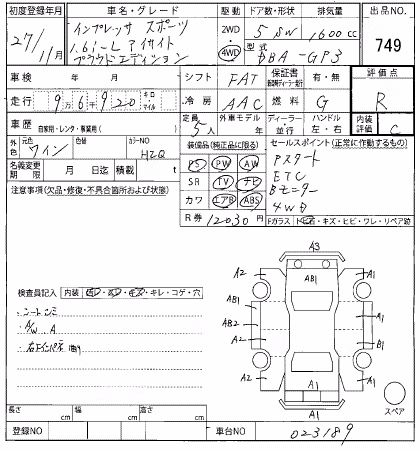 初度登録年月 車名・グレード 駆動 ドア数・形状 排気量 出品NO.
27/11月 インプレッサ スポーツ 2WD 4WD 5 SW 1,600cc 749
1.6i-L アイサイト 型式
プラウドエディション DBA-GP3
車検 年 月 シフト FAT 保証書 有・無 評価点
走行 9万6千920 キロ マイル 冷房 AAC 燃料 G R
車歴 自家用・レンタ・事業用( ) 定員 5人 外車モデル 年 ディーラー 並行 ハンドル 左・右 内装評価 C
外色 元色 ワイン 色替 カラーNO H2Q 装備品(純正品に限る) セールスポイント(正常に作動するもの)
名義変更期限 月 日迄 積載 t PS PW AW Pスタート
注意事項(欠品・修復・不具合箇所および状態) SR TV ナビ ETC
カワ エアB ABS Bモニター
4WD
R券 12030円 Fガラス トビ石・キズ・ヒビ・ワレ・リペア跡
A3
A2 AB1 A1
検査員記入 内装 キレ・コゲ・穴
AB1 A1
シートシミ AB2
A/W A A2 B1
右下インパネ
A2 A1
A1
A1 スペア
長さ cm 幅 cm 高さ cm
登録NO 車台NO 023189